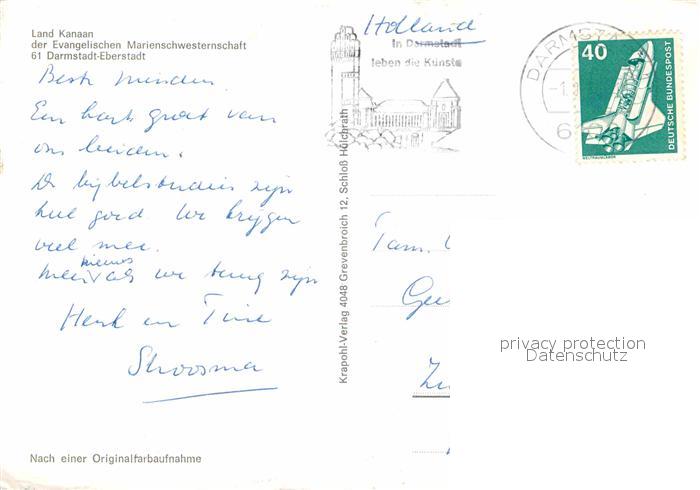 Land Kanaan
der Evangelischen Marienschwesternschaft
61 Darmstadt-Eberstadt
Beste vrienden
Een hart. groet van
ons beiden.
De bijbelstudies zijn
heel goed We krijgen
veel mee.
Meer nieuws als we terug zijn
Henk en Tine
Stroosma
Nach einer Originalfarbaufnahme
Krapohl-Verlag 4048 Grevenbroich 12, Schloß Hülchrath
Holland
In Darmstadt
leben die Künste
DARMST
40
DEUTSCHE BUNDESPOST
WELTRAUMLABOR
Fam.
Ge
Zu
privacy protection
Datenschutz